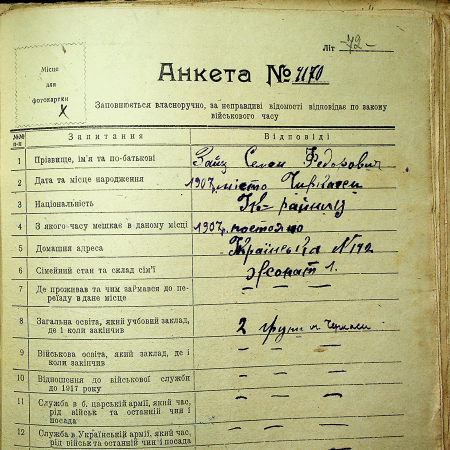 Місце
для
фотокартки
Літ 72-
Анкета № 4170
Заповнюється власноручно, за неправдиві відомості відповідає по закову
військового часу
№№ п-п Запитання Відповіді
1 Прізвище, ім'я та по-батькові Заїц Семен Федорович
2 Дата та місце народження 1907, місто
3 Національність
4 З якого часу мешкає в даному місці 1907, постояно
5 Домашня адреса Українська № 142
6 Сімейний стан та склад сім'ї жонат 1.
7 Де проживав та чим займався до пе-
реїзду в дане місце — — —
8 Загальна освіта, який учбовий заклад,
де і коли закінчив 2 групи м. Черкаси
9 Військова освіта, який заклад, де і
коли закінчив — — —
10 Відношення до військової служби
до 1917 року — — —
11 Служба в б. царській армії, який час,
рід військ та останній чин і
посада — — —
12 Служба в Українській армії, який час,
рід військ та останній чин і
посада — — —